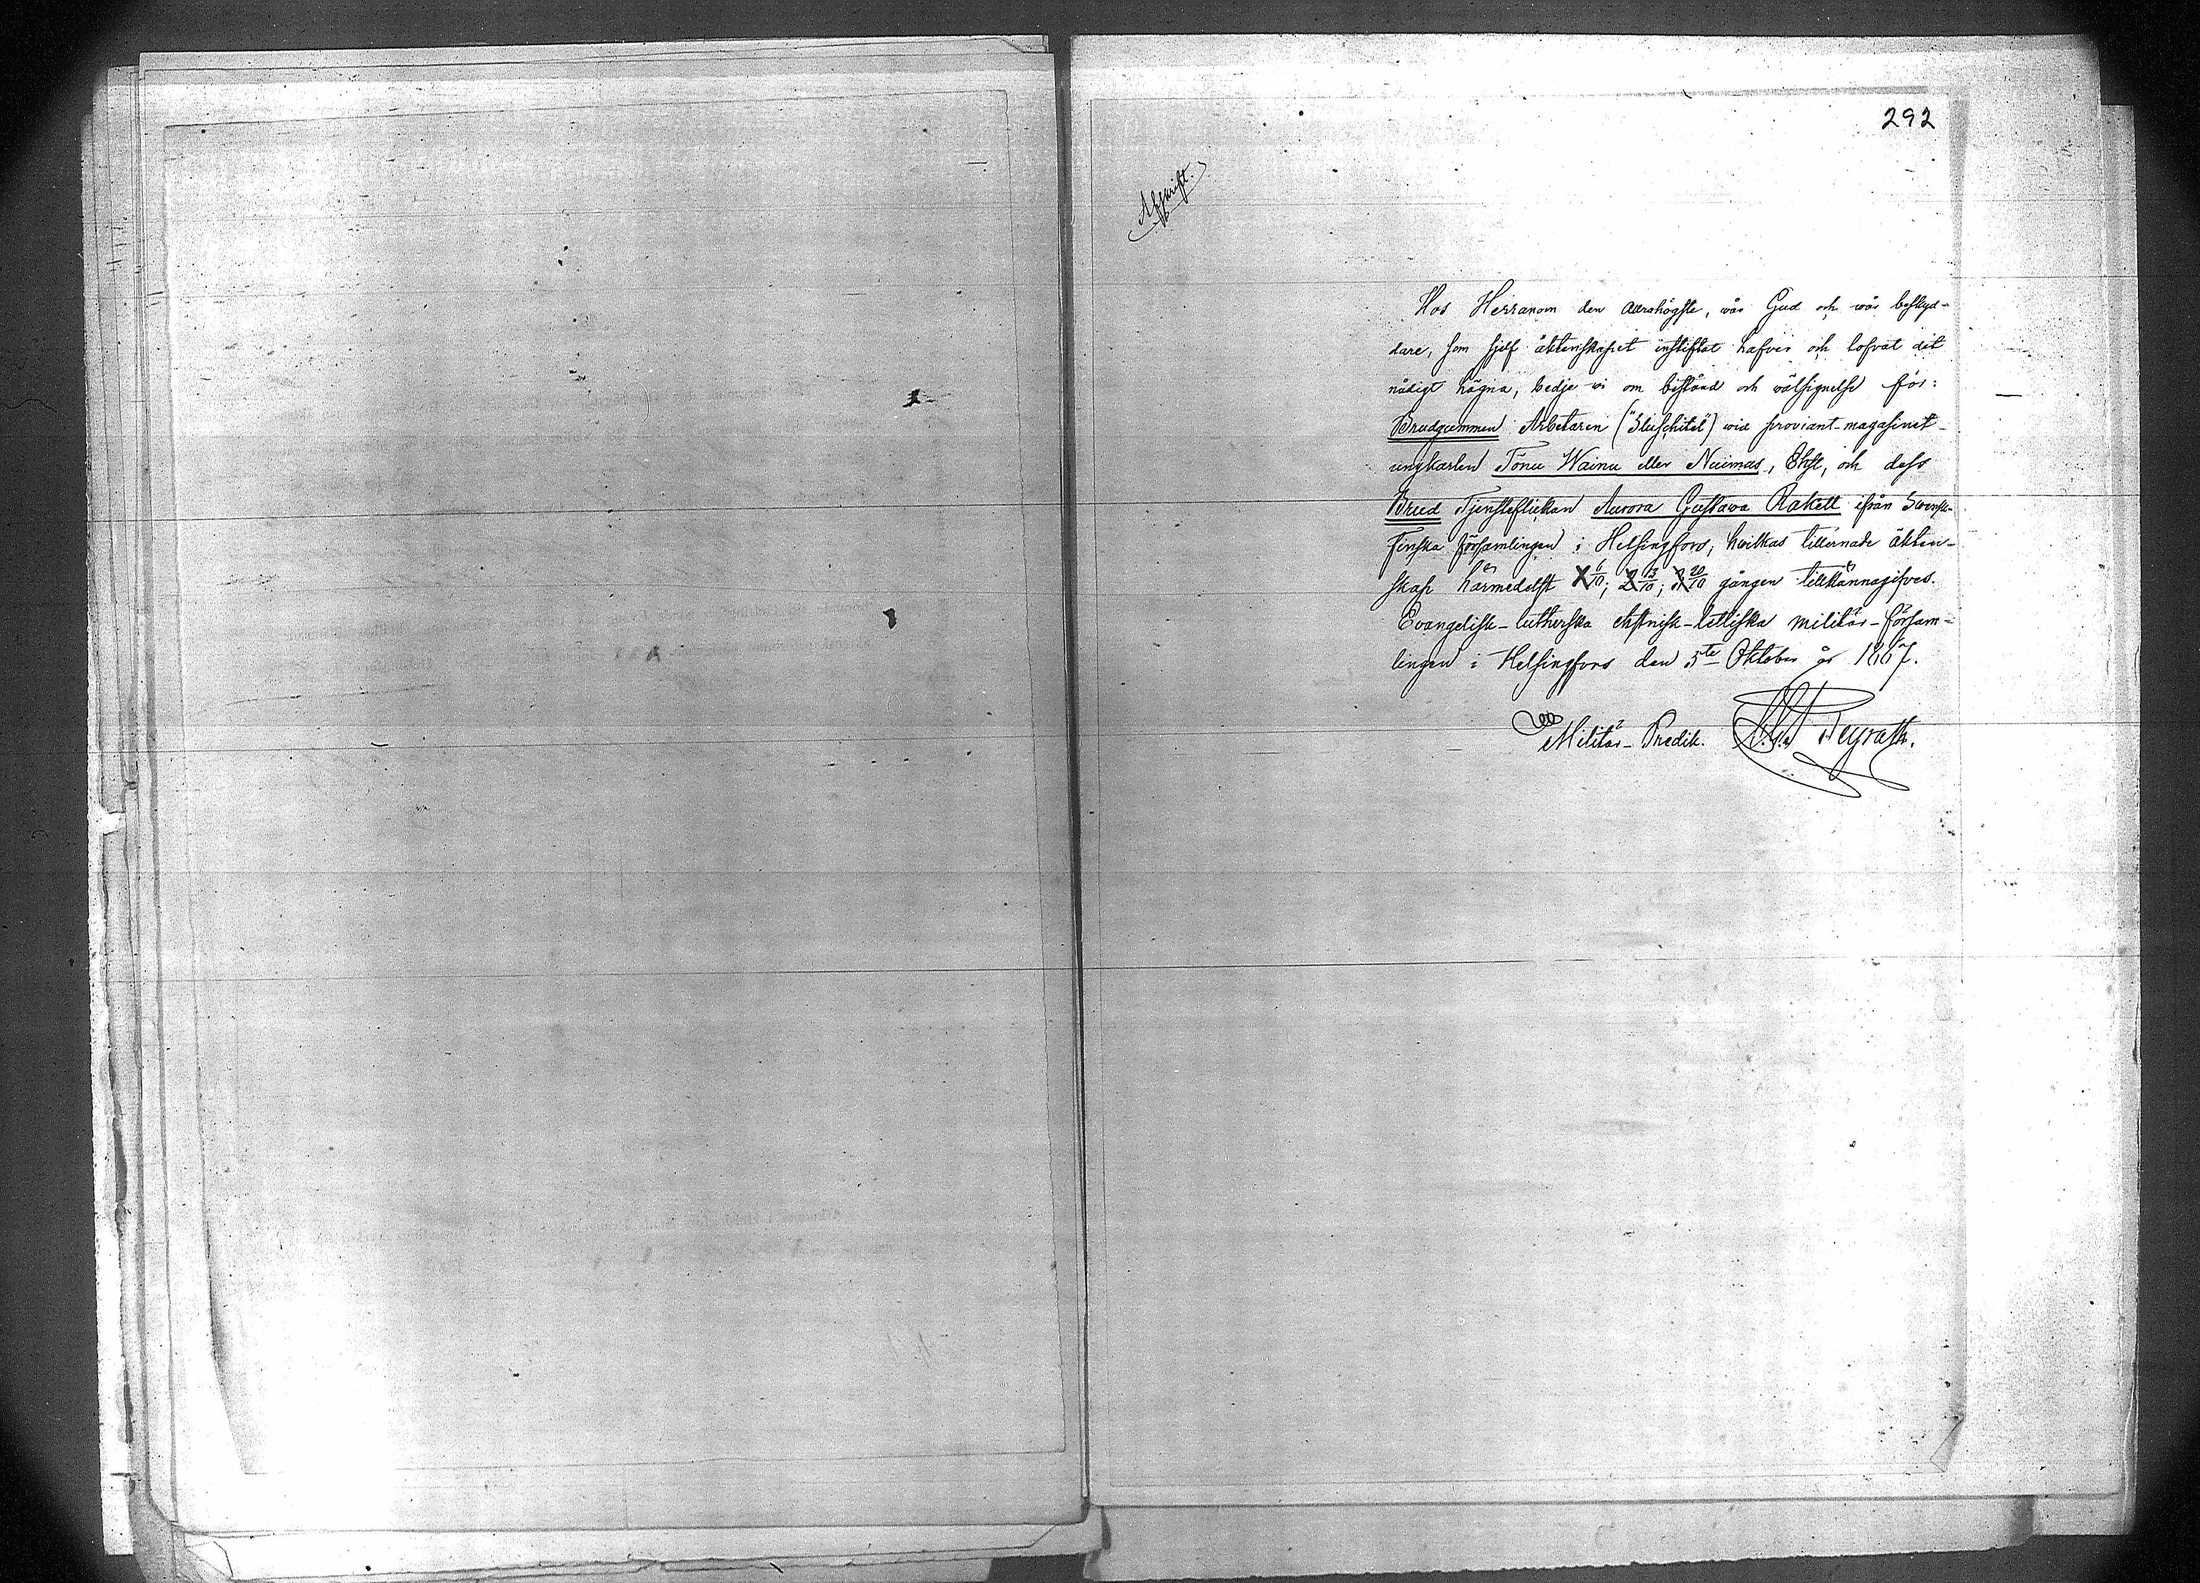 292
Afskrift.
Hos Herranom den allrahögste, vår Gud och vår beskyd-
dare, som sjelf äktenskapet instiftat hafver och lofvat det
nådigt hägna, bedje vi om bistånd och välsignelse för:
Brudgummen Arbetaren ("Sluschitel") vid proviant-magasinet
ungkarlen Tönu Wainu eller Nuumas, Ehst, och dess
Brud Tjensteflickan Aurora Gustava Rakell ifrån Svensk-
Finska församlingen i Helsingfors, hvilkas tillernade äkten-
skap härmedelst 6/10; 2 13/10; 3 20/10 gången tillkännagifves.
Evangelisk-lutherska ehstnisk-lettiska militär-försam-
lingen i Helsingfors den 5te Oktober år 1867.
Militär-Predik. Neyrath.